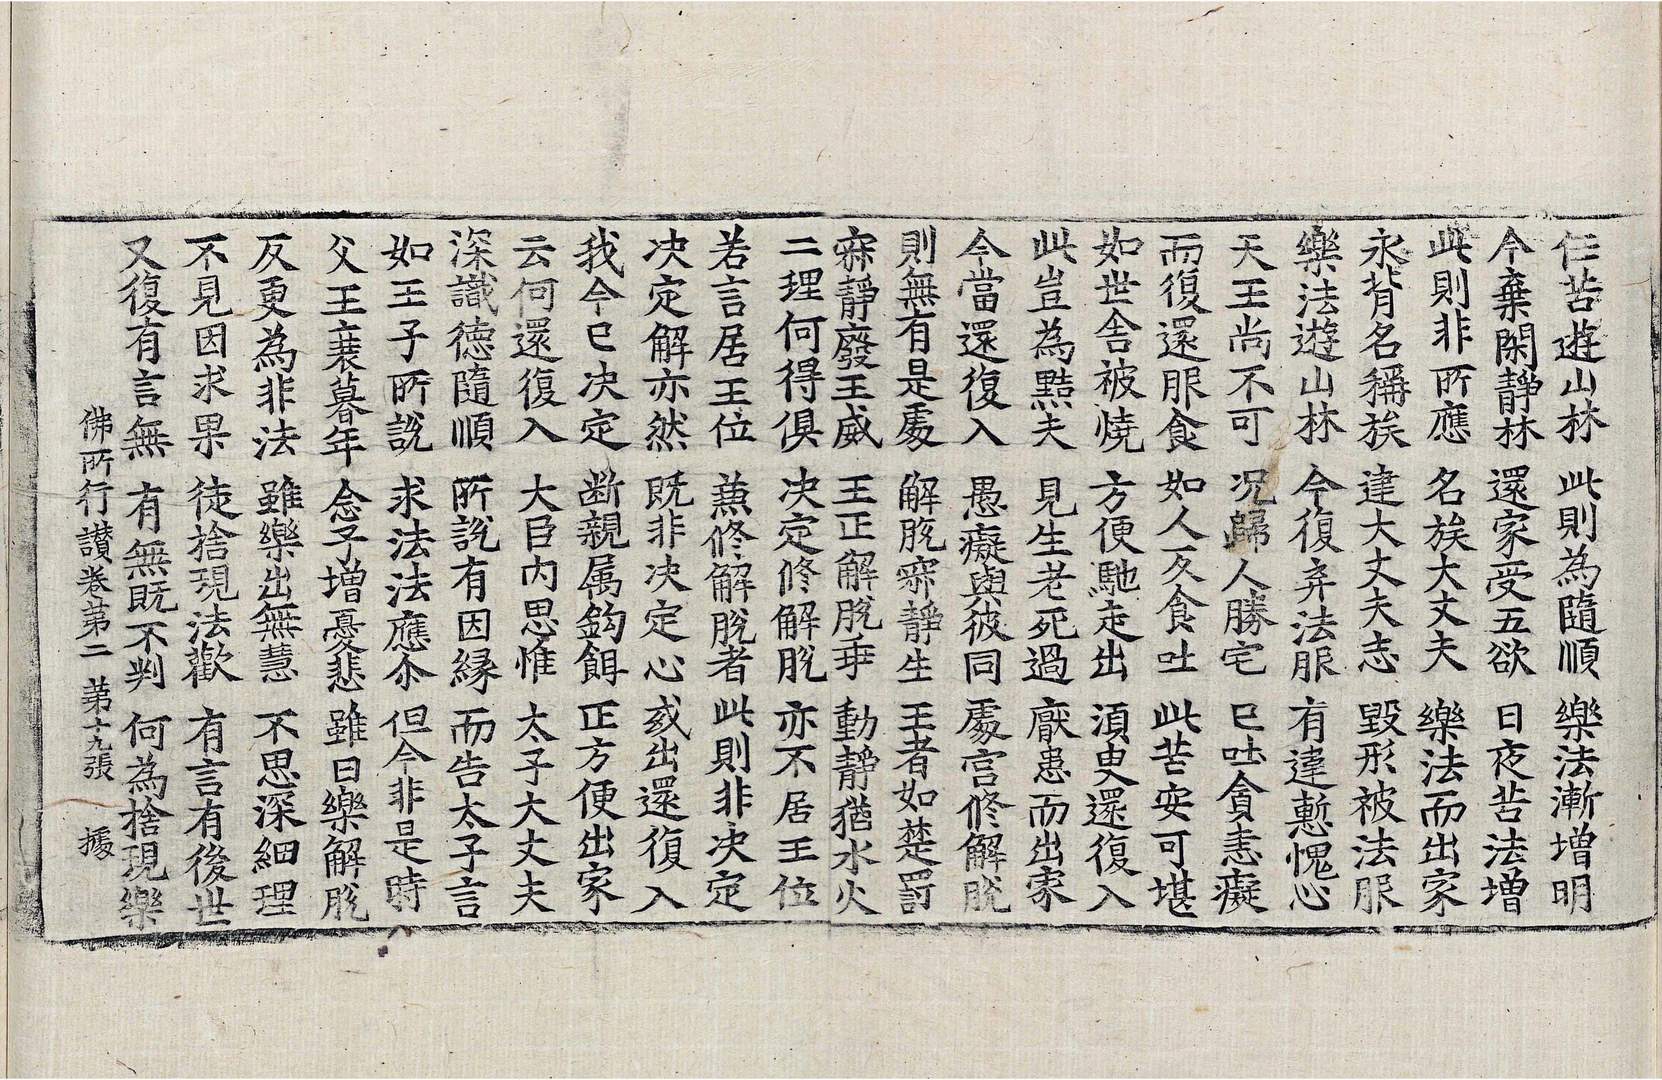 任苦遊山林 此則為隨順 樂法漸增明
今棄閑靜林 還家受五欲 日夜苦法增
此則非所應 名族大丈夫 樂法而出家
永背名稱族 建大丈夫志 毀形被法服
樂法遊山林 今復弃法服 有違慙愧心
天王尚不可 況歸人勝宅 已吐貪恚癡
而復還服食 如人反食吐 此苦安可堪
如世舍被燒 方便馳走出 須臾還復入
此豈為黠夫 見生老死過 厭患而出家
今當還復入 愚癡與彼同 處宮修解脫
則無有是處 解脫寂靜生 王者如楚罰
寂靜廢王威 王正解脫乖 動靜猶水火
二理何得俱 決定修解脫 亦不居王位
若言居王位 兼修解脫者 此則非決定
決定解亦然 既非決定心 或出還復入
我今已決定 斷親属鈎餌 正方便出家
云何還復入 大臣內思惟 太子大丈夫
深識德隨順 所說有因緣 而告太子言
如王子所說 求法法應尒 但今非是時
父王衰暮年 念子增憂悲 雖曰樂解脫
反更為非法 雖樂出無慧 不思深細理
不見因求果 徒捨現法歡 有言有後世
又復有言無 有無既不判 何為捨現樂
佛所行讃卷第二 第十九張 據